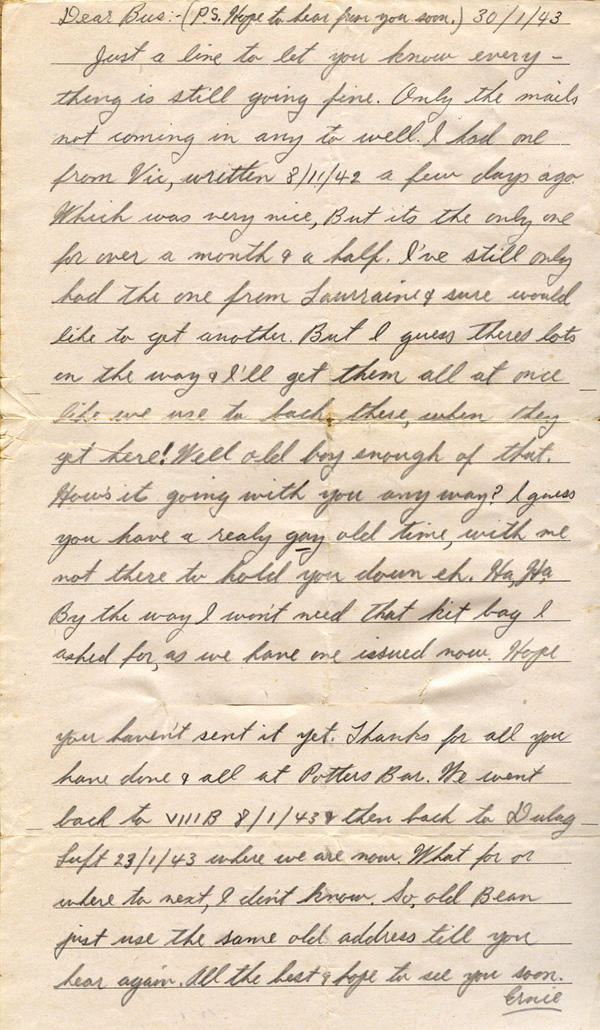 Dear Bus:-(P.S. Hope to hear from you soon.) 30/1/43
Just a line to let you know every-
thing is still going fine. Only the mails
not coming in any to well. I had one
from Vic, written 8/11/42 a few days ago.
Which was very nice, But its the only one
for over a month & a half. I've still only
had the one from Laurraine & sure would
like to get another. But I guess theres lots
on the way & I'll get them all at once
like we use to back there, when they
get here! Well old boy enough of that.
How's it going with you any way? I guess
you have a realy gay old time, with me
not there to hold you down eh. Ha, Ha,
By the way I won't need that kit bag I
asked for, as we have one issued now. Hope
you haven't sent it yet. Thanks for all you
have done & all at Potters Bar. We went
back to VIIIB 8/1/43 & then back to Dulag
Luft 23/1/43 where we are now. What for or
where to next, I don't know. So, old Bean
just use the same old address till you
hear again. All the best & hope to see you soon.
Ernie